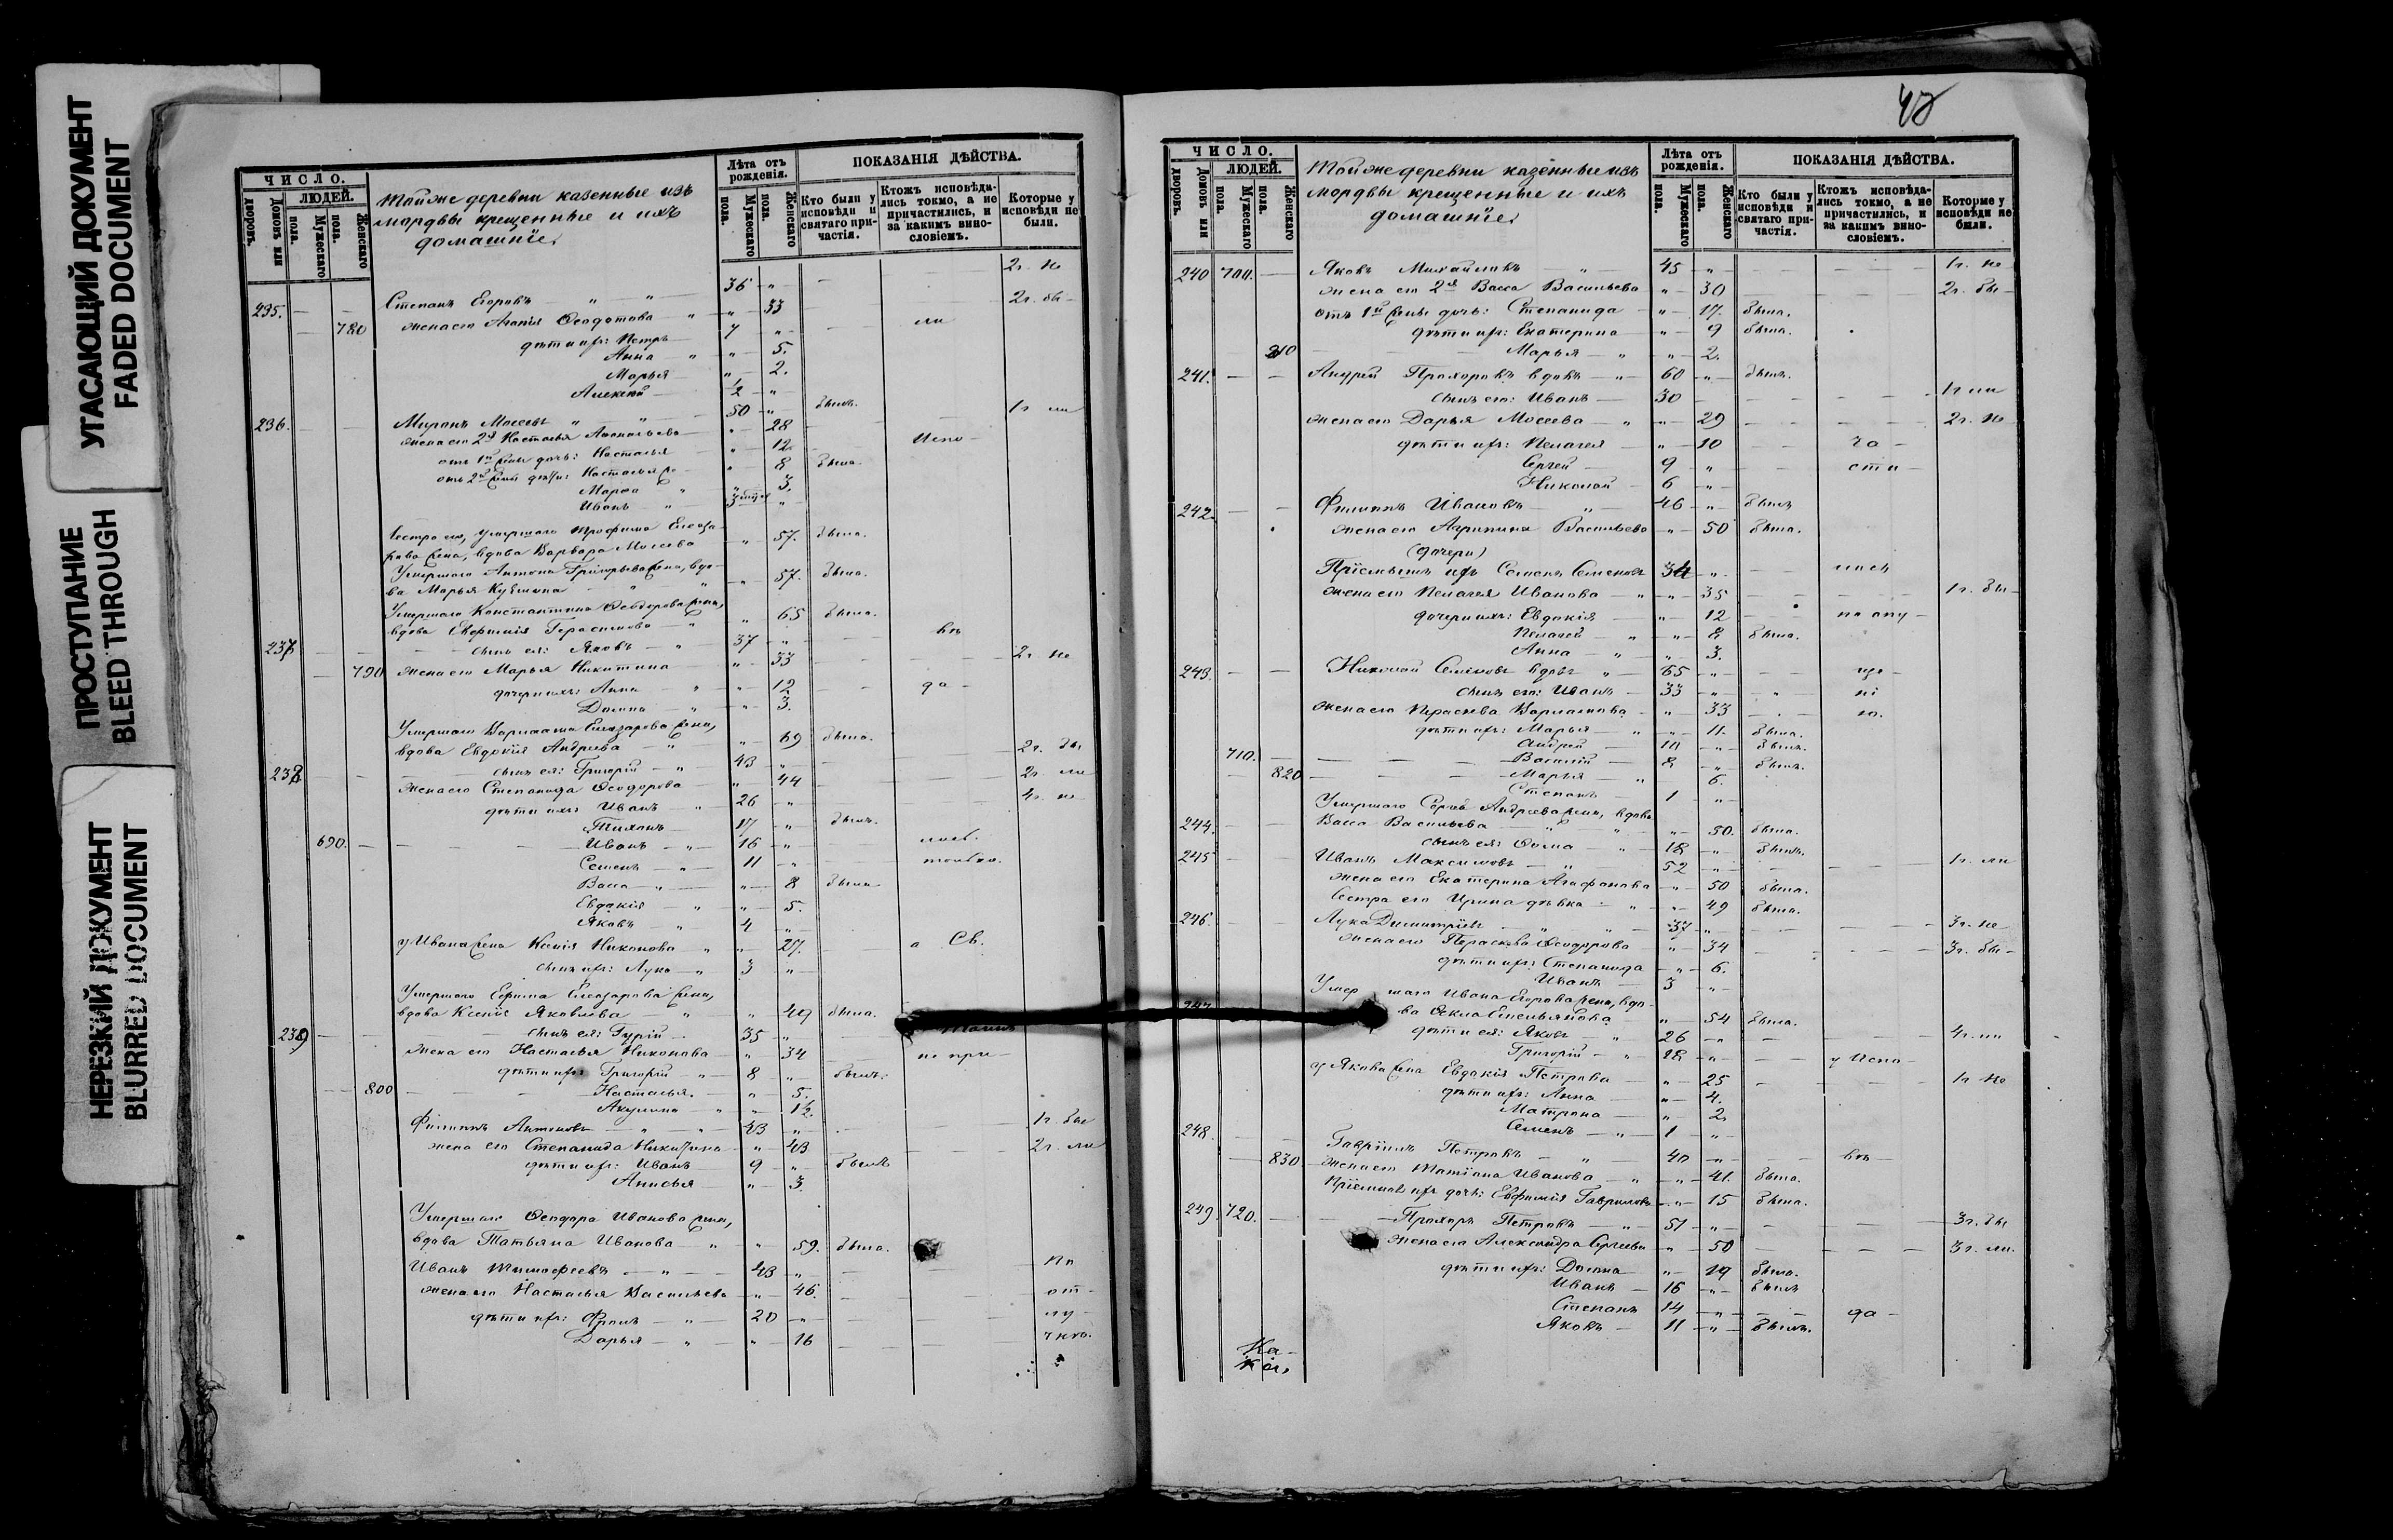 УГАСАЮЩИЙ ДОКУМЕНТ
FADED DOCUMENT
ПРОСТУПАНИЕ
BLEED THROUGH
НЕРЕЗКИЙ ДОКУМЕНТ
BLURRED DOCUMENT
ЧИСЛО.
ЛЮДЕЙ.
Домовъ или дворовъ.
Мужескаго пола.
Женскаго пола.
Той же деревни казенные изъ
мордвы крещенные и ихъ
домашніе.
Лѣта отъ рожденія.
Мужескаго пола.
Женскаго пола.
ПОКАЗАНІЯ ДѢЙСТВА.
Кто были у исповѣди и святаго причастія.
Ктожъ исповѣдались токмо, а не причастились, и за какимъ винословіемъ.
Которые у исповѣди не были.
235. Степанъ Егоровъ 36 2г. не
780 жена его Агапія Ѳеодотова 33 2г. бы-
дѣти ихъ: Петръ 7 ли
Анна 5.
Марья 2.
Алексѣй 1/2
236. Миронъ Моѵсеевъ 50 былъ. 1г ли
жена его 2я Настасья 28
отъ 1й жены дочь: Настасья 12 Испо-
отъ 2й жены дѣти: Настасья 8 была.
Марѳа 3.
Иванъ 3
Сестра его, умершаго Трофима Елеаза-
рова жена, вдова Варвара Моѵсеева 57. была.
Умершаго Антона Григорьева жена, вдо-
ва Марья 57. была.
Умершаго Константина Ѳеодорова жена,
вдова Евфимія Герасимова 65 была.
237 сынъ ея: Яковъ 37 вѣ
790 жена его Марья Никитина 33 2г. не
дочери ихъ: Анна 12 да-
Домна 3.
Умершаго Варлаама Елеазарова жена,
вдова Евдокія Андреева 69 была.
238 сынъ ея: Григорій 43 2г. бы
жена его Степанида Ѳеодорова 44 2г. ли
дѣти ихъ: Иванъ 26 4г. не
Тихонъ 17 былъ.
690. Иванъ 16
Семенъ 11
Васса 8 была
Евдокія 5.
Яковъ 4
у Ивана жена Ксенія Никонова 27. а Св.
сынъ ихъ: Лука 3
Умершаго Ефима Елеазарова жена,
вдова Ксенія Яковлева 49 была.
239 сынъ ея: Гурій 35
жена его Настасья Никонова 34 не при-
дѣти ихъ: Григорій 8 былъ.
800 Настасья. 5.
Акулина 1 1/2.
Филиппъ Антоновъ 43 1г. бы
жена его Степанида Никитина 43 2г. ли
дѣти ихъ: Иванъ 9 былъ
Анисья 3
Умершаго Ѳеодора Иванова жена,
вдова Татьяна Иванова 59. была.
Иванъ Тимоѳеевъ 43 По
жена его Настасья Васильева 46. от-
дѣти ихъ: Фролъ 20 лу-
Дарья 16 чкѣ.
ЧИСЛО.
ЛЮДЕЙ.
Домовъ или дворовъ.
Мужескаго пола.
Женскаго пола.
Той же деревни казенные изъ
мордвы крещенные и ихъ
домашніе.
Лѣта отъ рожденія.
Мужескаго пола.
Женскаго пола.
ПОКАЗАНІЯ ДѢЙСТВА.
Кто были у исповѣди и святаго причастія.
Ктожъ исповѣдались токмо, а не причастились, и за какимъ винословіемъ.
Которые у исповѣди не были.
240 700. Яковъ Михайловъ 45 1г. не
жена его 2я Васса Васильева 30 2г. бы-
отъ 1й жены дочь: Степанида 17. была.
дѣти ихъ: Екатерина 9 была.
810 Марья 2.
241. Андрей Прохоровъ вдовъ 60 былъ.
сынъ его: Иванъ 30 1г ли
жена его Дарья Моѵсеева 29 2г. не
дѣти ихъ: Пелагея 10 ча-
Сергей 9 сти-
Николай 6
242. Филиппъ Ивановъ 46 былъ
жена его Агрипина Васильева 50 была.
(дочери)
Пріемышъ ихъ Семенъ Семеновъ 34
жена его Пелагея Иванова 35 1г. бы-
дочери ихъ: Евдокія 12
Пелагея 8 была.
Анна 3.
243. Николай Семеновъ вдовъ 65
сынъ его: Иванъ 33
жена его Параскева Варламова 33
дѣти ихъ: Марья 11. была.
Андрей 10 былъ.
710. Василій 8 былъ.
820 Марья 6.
Степанъ 1
Умершаго Сергѣя Андреева жена, вдова
244. Васса Васильева 50. была.
сынъ ея: Ѳома 18 былъ.
245 Иванъ Максимовъ 52 1г. ли
жена его Екатерина Агафонова 50 была.
Сестра его Ирина дѣвка 49 была.
246. Лука Димитріевъ 37 3г. не
жена его Параскева Ѳеодорова 34 3г. бы-
дѣти ихъ: Степанида 6.
Иванъ 3
Умершаго Ивана Егорова жена, вдо-
247 ва Ѳекла Емельянова 54 была.
дѣти ея: Яковъ 26 4г. ли
Григорій 18 у Испо-
у Якова жена Евдокія Петрова 25 1г не
дѣти ихъ: Анна 4.
Матрона 2
Семенъ 1
248. Гавріилъ Петровъ 40 вѣ-
830 жена его Татіана Иванова 41. была.
Пріемная ихъ дочь: Евфимія Гаврилова 15 была.
249. 720. Прохоръ Петровъ 51 3г. бы
жена его Александра Сергеева 50 3г. ли.
дѣти ихъ: Домна 19 была.
Иванъ 16 былъ
Степанъ 14 да-
Яковъ 11 былъ.